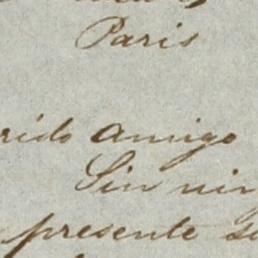 Paris
rido amigo
Sin nin
presente se